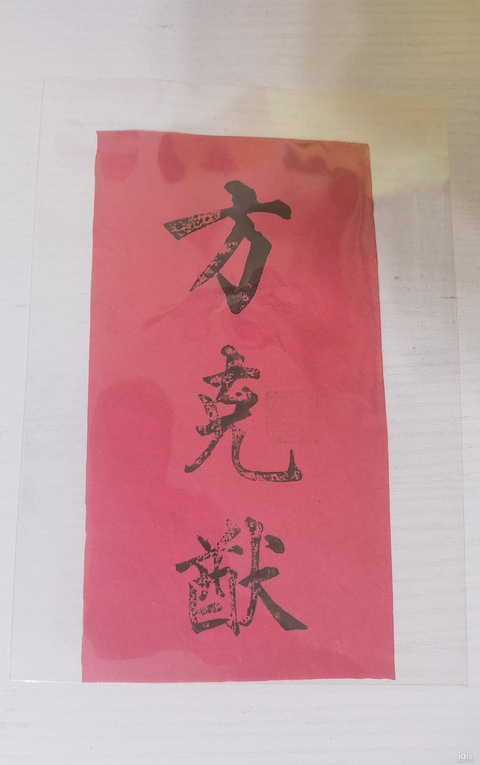 方克猷